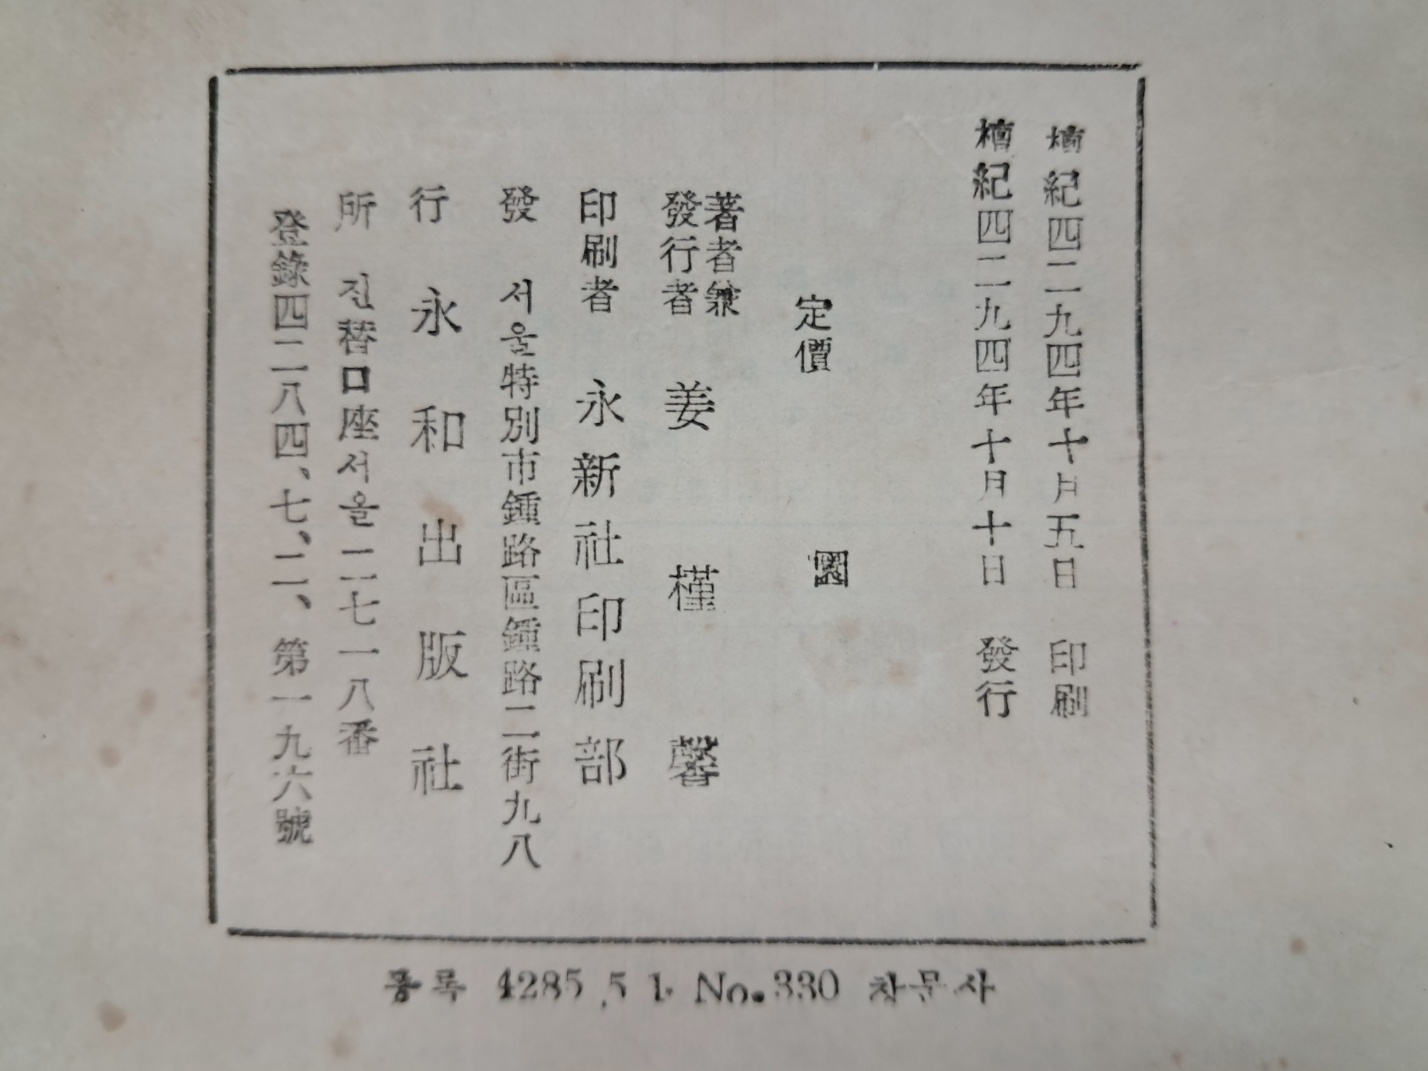 檀紀四二九四年十月五日 印刷
檀紀四二九四年十月十日 發行
定價 圜
著者兼
發行者 姜槿馨
印刷者 永新社印刷部
發 서울特別市鍾路區鍾路二街九八
行 永和出版社
所 진替口座서울二七一八番
登錄四二八四、七、二、第一九六號
등록 4285.5 1. No.330 차문사